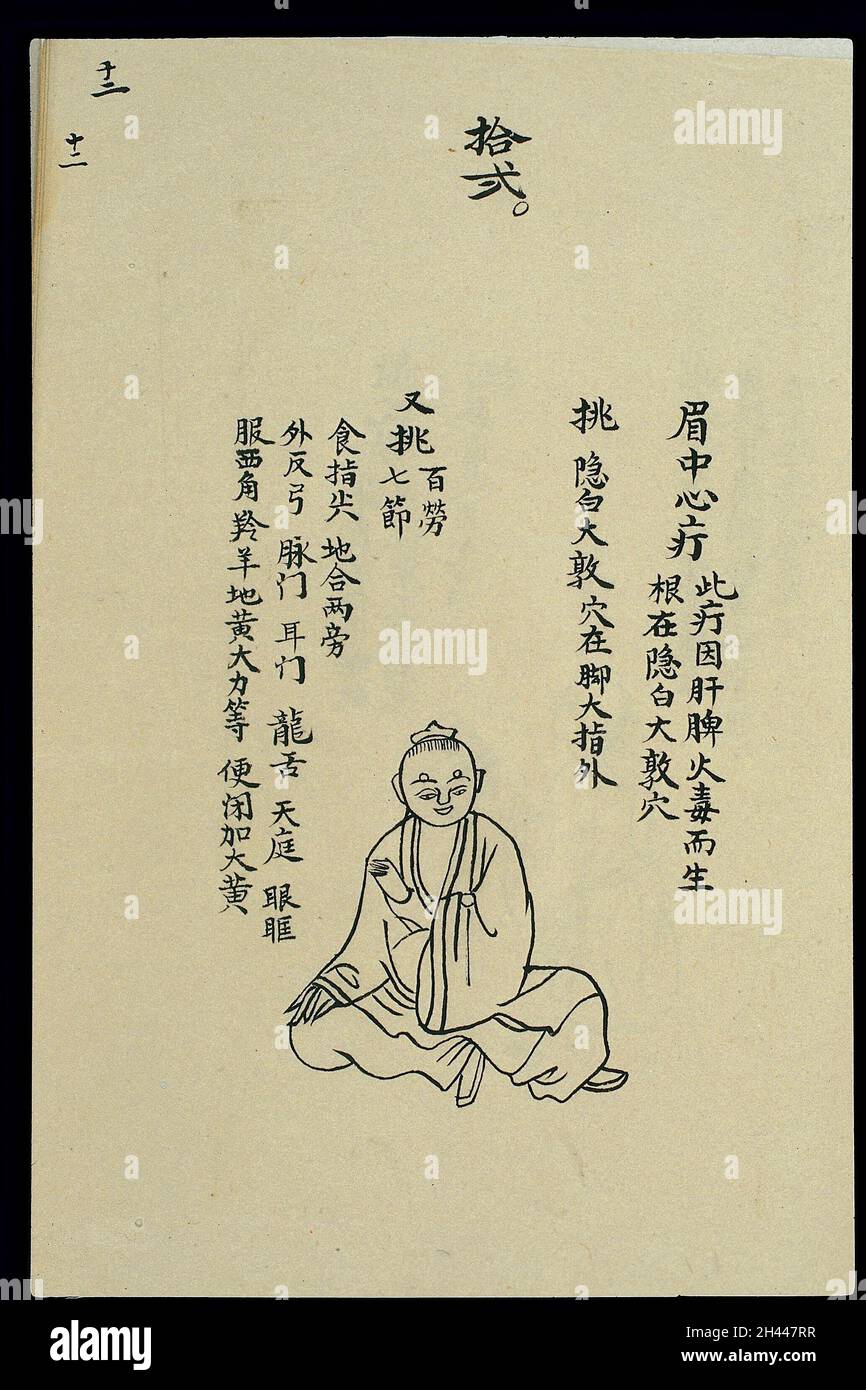 拾弍。
十二
十二
眉中心疔
此疔因肝脾火毒而生
根在隐白大敦穴
挑 隐白大敦穴在脚大指外
又挑
百勞
七節
食指尖 地合两旁
外反弓 脉门 耳门 龍舌 天庭 眼眶
服西角羚羊地黄大力等 便闭加大黄
alamy
alamy
alamy
alamy
a
a
a
a
a
a
a
a
a
a
alamy
Image ID: 2H447RR
www.alamy.com